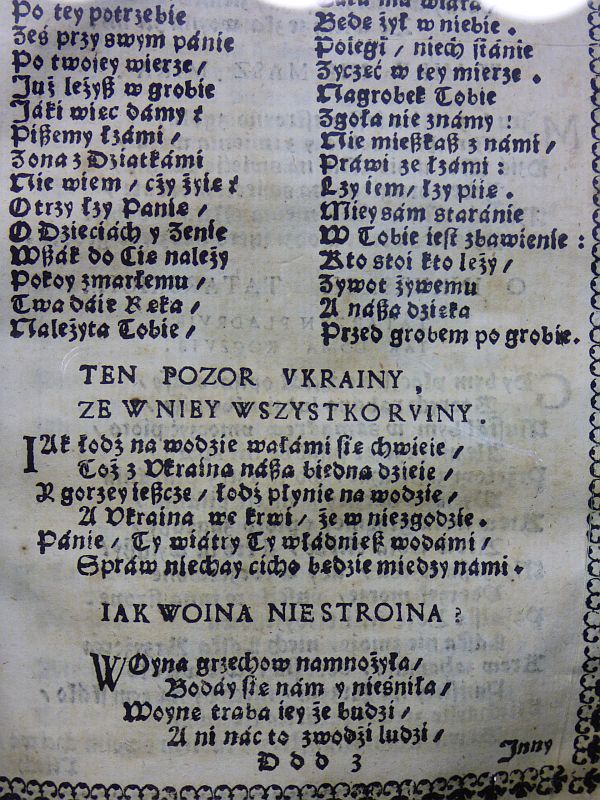 Po tey potrzebie
Żeś przy swym pánie
Po twoiey wierze /
Już leżyß w grobie
Jáki więc damy ?
Pißemy łzámi /
Zona z Dziatkámi
Nie wiem / czy żyie ?
O trzy łzy Panie /
O Dzieciách y Zenie
Wßák do Cię należy
Pokoy zmarłemu /
Twa dáie Ręka /
Należyta Tobie /
Będe żył w niebie .
Poiegi / niech stánie
Zyczęć w tey mierze .
Nagrobek Tobie
Zgoła nie známy :
Nie mießkaß z námi /
Práwi ze łzámi :
Łzy iem / łzy piie .
Miey sám stáránie
W Tobie iest zbawienie :
Kto stoi kto leży /
Zywot żywemu
A náßá dzięka
Przed grobem po grobie .
TEN POZOR VKRAINY ,
ZE W NIEY WSZYSTKO RVINY .
IAk łodź na wodzie wałámi się chwieie /
Toż z Vkraina náßa biedna dzieie /
A gorzey ießcze / łodź płynie na wodzie /
A Vkraina we krwi / że w niezgodzie .
Pánie / Ty wiátry Ty władnieß wodámi /
Spraw niechay cicho będzie miedzy námi .
IAK WOINA NIESTROINA ?
WOyna grzechow namnożyła /
Bodáy się nam y nieśniła /
Woynę trąba iey że budzi /
A ni nác to zwodźi ludzi /
D d d 3
Inny